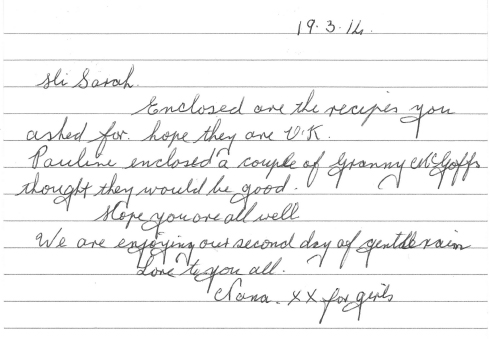 19.3.14.
Hi Sarah.
Enclosed are the recipes you
asked for. hope they are O.K.
Pauline enclosed a couple of Granny McGoffs
thought they would be good.
Hope you are all well
We are enjoying our second day of gentle rain
Love to you all.
Nana. XX for girls